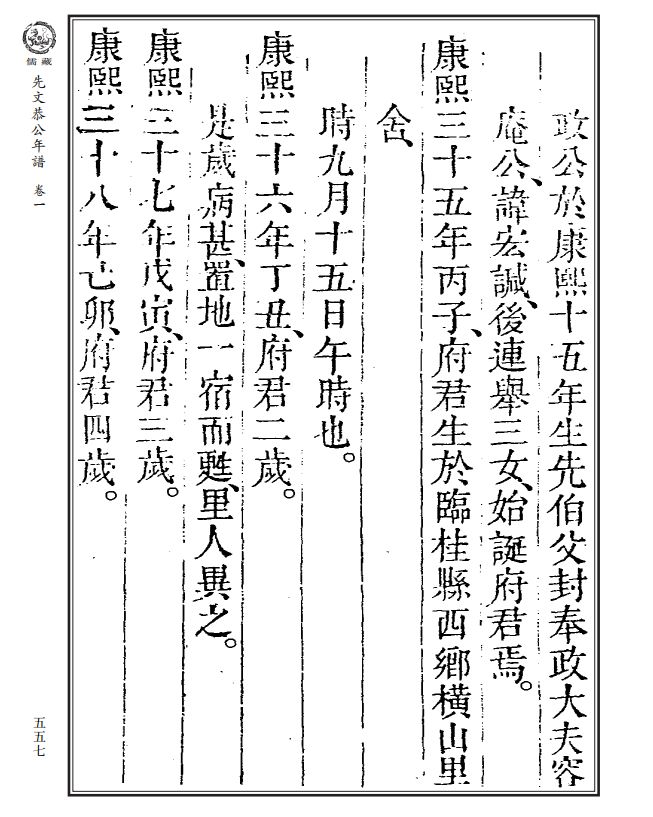 政公於康熙十五年生先伯父封奉政大夫容
庵公、諱宏諴、後連舉三女、始誕府君焉。
康熙三十五年丙子、府君生於臨桂縣西鄉橫山里
舍、
時九月十五日午時也。
康熙三十六年丁丑、府君二歲。
是歲病甚、置地一宿而甦、里人異之。
康熙三十七年戊寅、府君三歲。
康熙三十八年己卯、府君四歲。
儒藏
先文恭公年譜 卷一
五五七